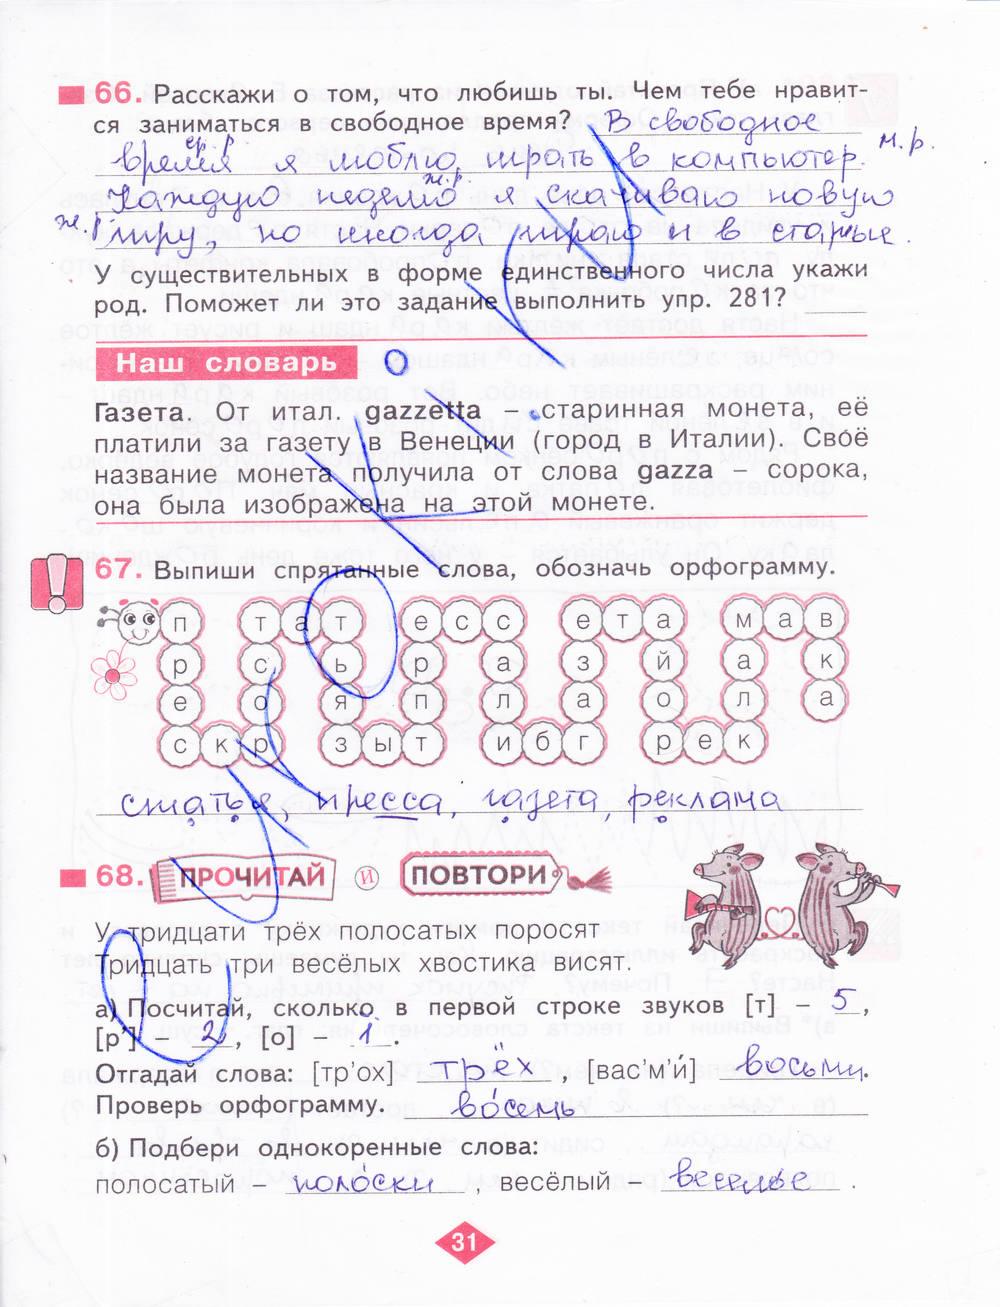 66. Расскажи о том, что любишь ты. Чем тебе нравит-
ся заниматься в свободное время? В свободное
ср.р.
время я люблю играть в компьютер. м.р.
ж.р.
Каждую неделю я скачиваю новую
ж.р.
игру, но иногда играю и в старые.
У существительных в форме единственного числа укажи
род. Поможет ли это задание выполнить упр. 281?
Наш словарь
Газета. От итал. gazzetta – старинная монета, её
платили за газету в Венеции (город в Италии). Своё
название монета получила от слова gazza – сорока,
она была изображена на этой монете.
67. Выпиши спрятанные слова, обозначь орфограмму.
п т а т е с с е т а м а в
р с ь р а з й а к
е о я п л а о л а
с к р з ы т и б г р е к
статья, пресса, газета, реклама
68. ПРОЧИТАЙ И ПОВТОРИ
У тридцати трёх полосатых поросят
Тридцать три весёлых хвостика висят.
а) Посчитай, сколько в первой строке звуков [т] – 5,
[р'] – 2, [о] – 1.
Отгадай слова: [тр'ох] трёх, [вас'м'и́] восьми.
Проверь орфограмму. во́семь
б) Подбери однокоренные слова:
полосатый – поло́ски, весёлый – веселье.
31